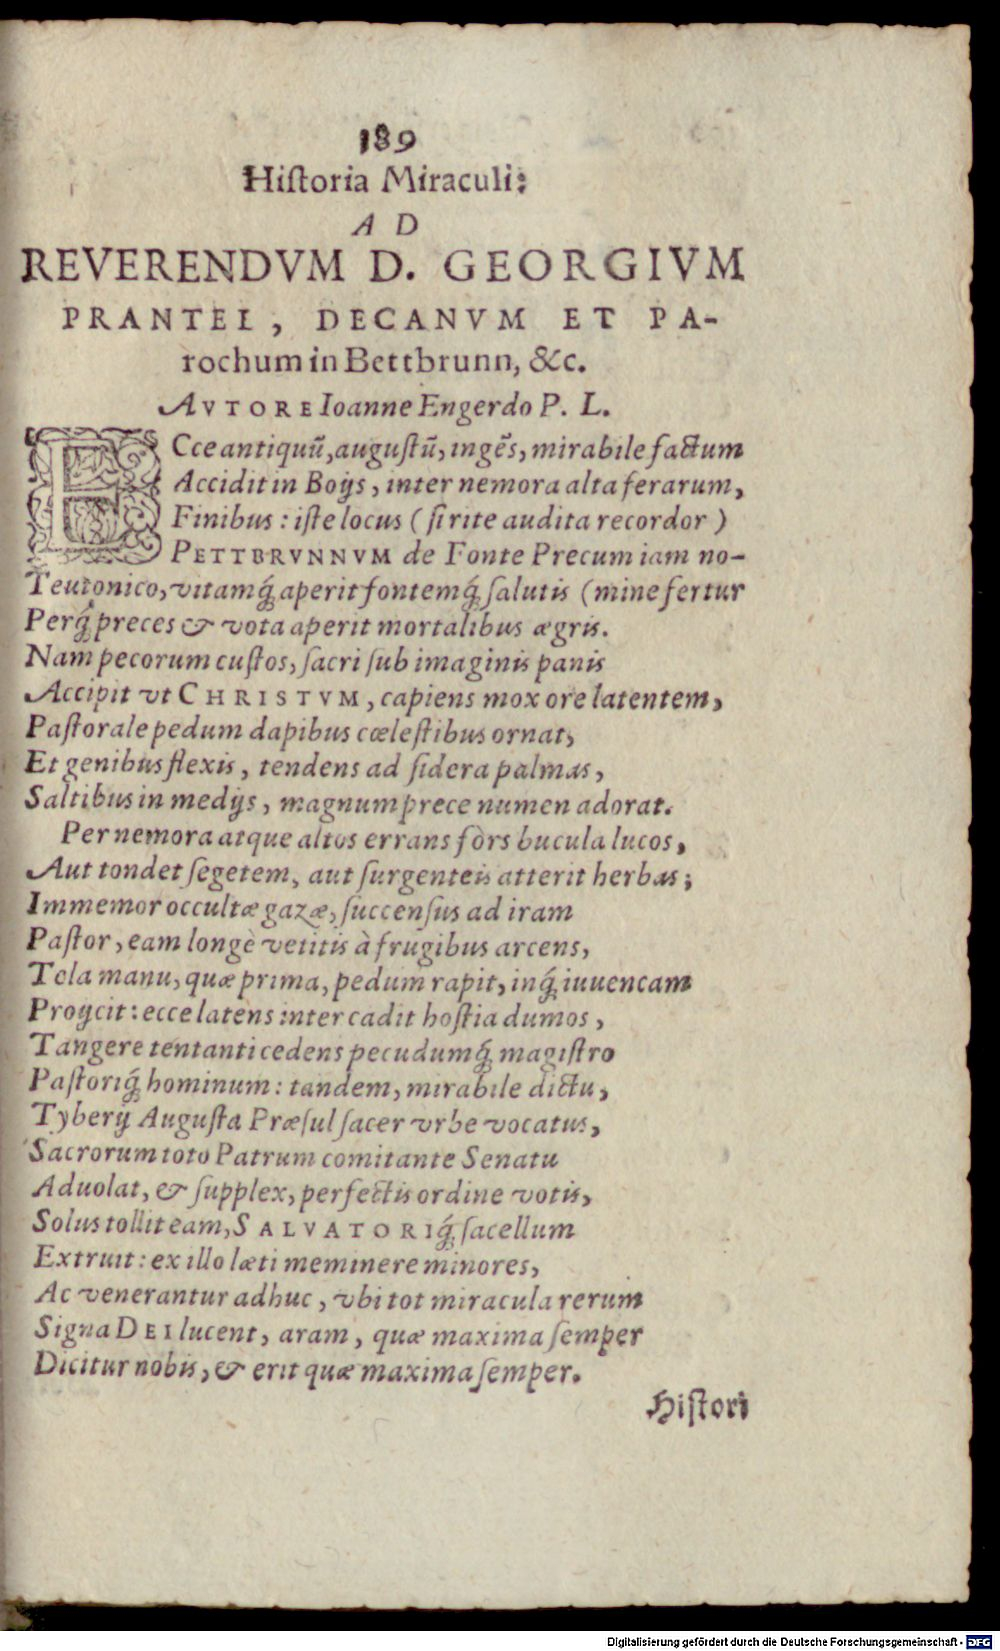 189
Hiſtoria Miraculi:
A D
REVERENDVM D. GEORGIVM
PRANTEL, DECANVM ET PA-
rochum in Bettbrunn, &c.
AVTORE Ioanne Engerdo P. L.
ECce antiquū, auguſtū, ingēs, mirabile factum
Accidit in Boijs, inter nemora alta ferarum,
Finibus: iſte locus (ſi rite audita recordor)
PETTBRVNNVM de Fonte Precum iam no-
Teutonico, vitamq́; aperit fontemq́; ſalutis (mine fertur
Perq́; preces & vota aperit mortalibus ægris.
Nam pecorum cuſtos, ſacri ſub imaginis panis
Accipit vt CHRISTVM, capiens mox ore latentem,
Paſtorale pedum dapibus cœleſtibus ornat,
Et genibus flexis, tendens ad ſidera palmas,
Saltibus in medijs, magnum prece numen adorat.
Per nemora atque altos errans fòrs bucula lucos,
Aut tondet ſegetem, aut ſurgenteis atterit herbas;
Immemor occultæ gazæ, ſuccenſus ad iram
Paſtor, eam longè vetitis à frugibus arcens,
Tela manu, quæ prima, pedum rapit, inq́; iuuencam
Proijcit: ecce latens inter cadit hoſtia dumos,
Tangere tentanti cedens pecudumq́; magiſtro
Paſtoriq́; hominum: tandem, mirabile dictu,
Tyberij Auguſta Præſul ſacer vrbe vocatus,
Sacrorum toto Patrum comitante Senatu
Aduolat, & ſupplex, perfectis ordine votis,
Solus tollit eam, SALVATORIq́; ſacellum
Extruit: ex illo læti meminere minores,
Ac venerantur adhuc, vbi tot miracula rerum
Signa DEI lucent, aram, quæ maxima ſemper
Dicitur nobis, & erit quæ maxima ſemper.
Hiſtori
Digitalisierung gefördert durch die Deutsche Forschungsgemeinschaft - DFG